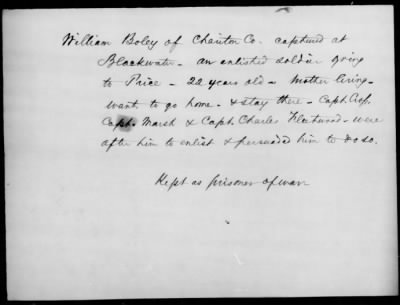 William Boley of Chariton Co. captured at
Blackwater - an enlisted soldier going
to Price - 22 years old - Mother living -
want to go home - & stay there - Capt.
Capt. Marsh & Capt. Charles Fleetwood - were
after him to enlist & persuaded him to do so.
Kept as prisoner of war